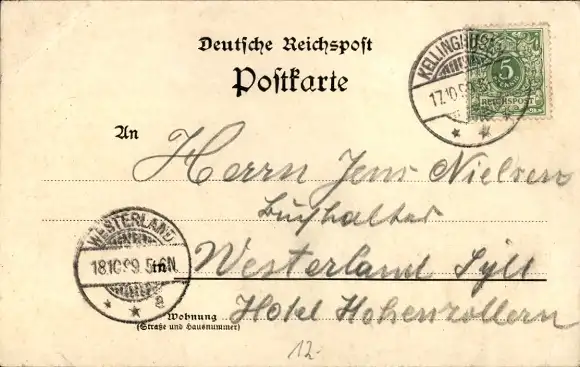 Deutsche Reichspost
Postkarte
KELLINGHUSEN
17.10.99
5
REICHSPOST
An
Herrn Jens Nielsen
Buchhalter
in Westerland Sylt
Hotel Hohenzollern
WESTERLAND
18.10.99. 5-6N
* * a
Wohnung
(Straße und Hausnummer)
12-